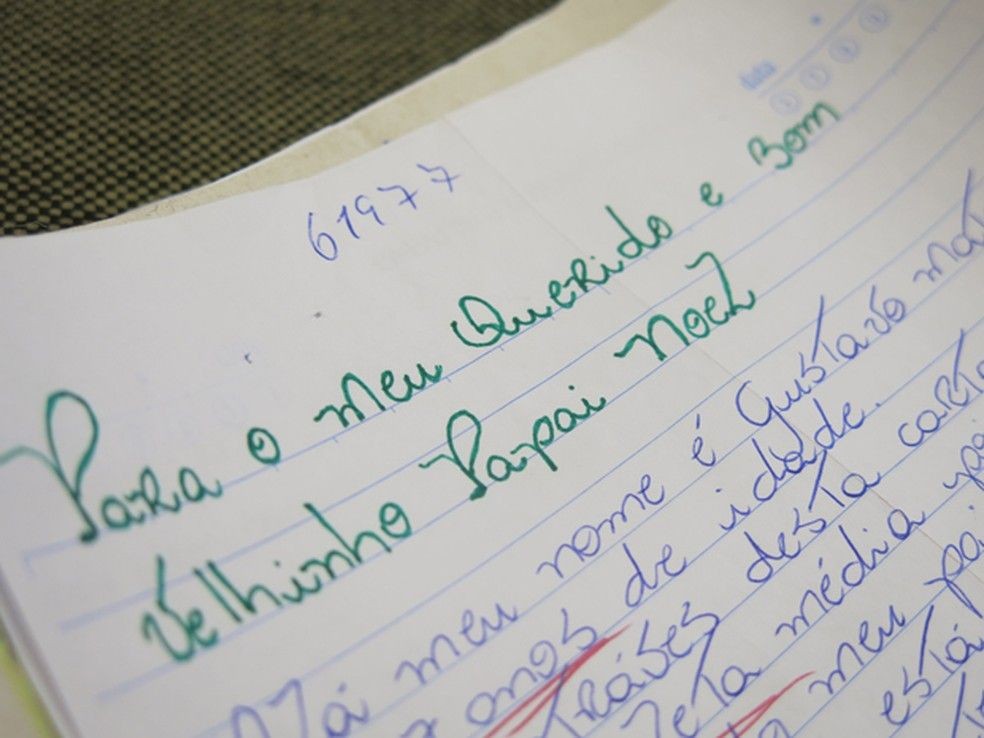 data
61977
Para o meu Querido e Bom
Velhinho Papai Noel
meu nome é Gustavo
anos de idade.
através desta carta
média
meu pai
está